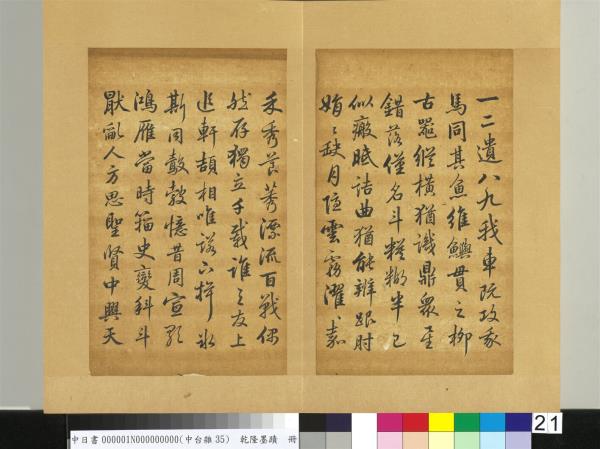 一二遺八九我車既攻亦
馬同其魚維鱮貫之柳
古器縱橫猶識鼎衆星
錯落僅名斗糢糊半已
似瘢胝詰曲猶能辨跟肘
娟〻缺月隱雲霧濯〻嘉
禾秀莨莠漂流百戰偶
然存獨立千載誰与友上
追軒頡相唯諾下揖冰
斯同鷇㝅憶昔周宣歌
鴻雁當時籀史變科斗
厭亂人方思聖賢中興天
中日書000001N000000000(中台雜35) 乾隆墨蹟 冊
21